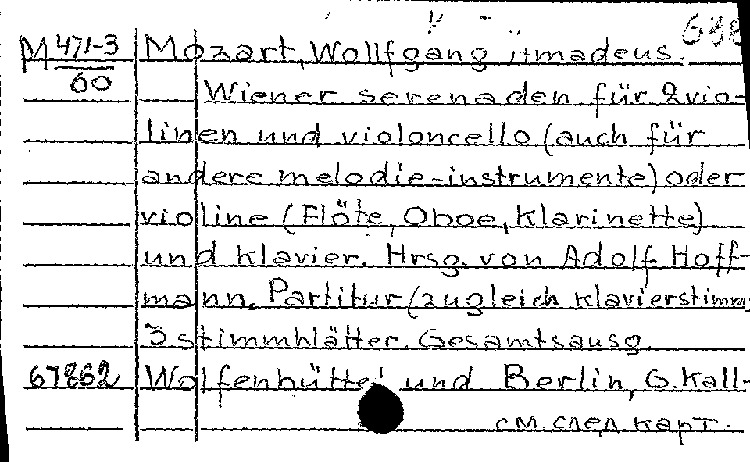 688
M 471-3 Mozart, Wollfgang Amadeus.
60
Wiener serenaden für 2 vio-
linen und violoncello (auch für
andere melodie-instrumente) oder
violine (Flöte, Oboe, Klarinette)
und Klavier. Hrsg. von Adolf Hoff-
mann. Partitur (zugleich Klavierstimm
3 stimmblätter. Gesamtausg.
67862 Wolfenbüttel und Berlin, G. Kall-
см. след. карт.